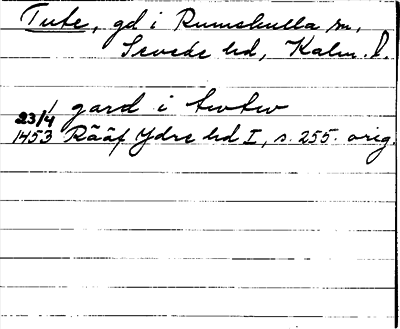 Tute, gd i Rumskulla sn,
Sevede hd, Kalm. l.
gard i twtw
23/4
1453 Rääf Ydre hd I, s. 255. orig.